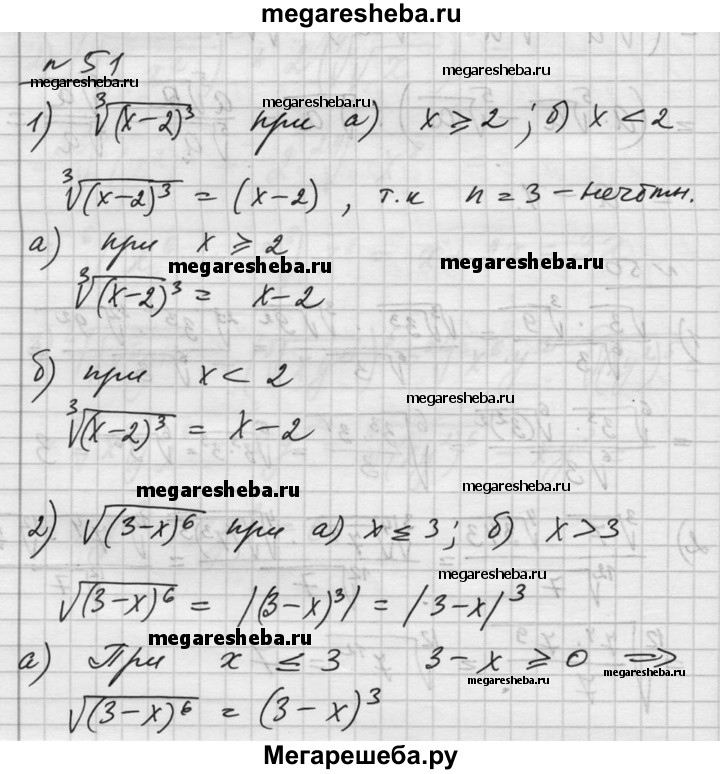 megaresheba.ru
n 51
megaresheba.ru
megaresheba.ru
megaresheba.ru
1) ∛(x-2)³ при а) x ⩾ 2 ; б) x < 2
∛(x-2)³ = (x-2) , т.к n = 3 - нечётн.
а) при x ⩾ 2
megaresheba.ru
megaresheba.ru
∛(x-2)³ = x-2
б) при x < 2
megaresheba.ru
∛(x-2)³ = x-2
megaresheba.ru
megaresheba.ru
2) √(3-x)⁶ при а) x ≤ 3; б) x > 3
megaresheba.ru
√(3-x)⁶ = |(3-x)³| = |3-x|³
megaresheba.ru
megaresheba.ru
а) При x ≤ 3 3-x ⩾ 0 ⟹
megaresheba.ru
megaresheba.ru
√(3-x)⁶ = (3-x)³
Мегарешеба.ру